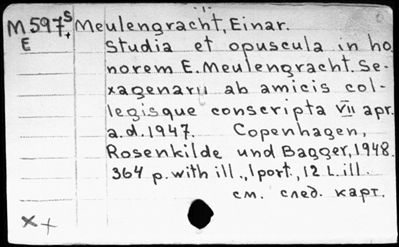 M597 S Meulengracht, Einar.
E + Studia et opuscula in ho
norem E. Meulengracht. Se-
xagenarii ab amicis col-
legisque conscripta VII apr.
a.d. 1947. Copenhagen,
Rosenkilde und Bagger, 1948.
364 p. with ill., 1 port., 12 L. ill.
см. след. карт.
x +